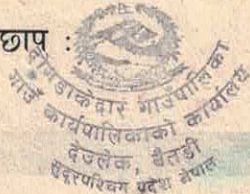 छाप :
दोगडाकेदार गाउँपालिका
गाउँ कार्यपालिकाको कार्यालय
देउलेक, बैतडी
सुदूरपश्चिम प्रदेश नेपाल